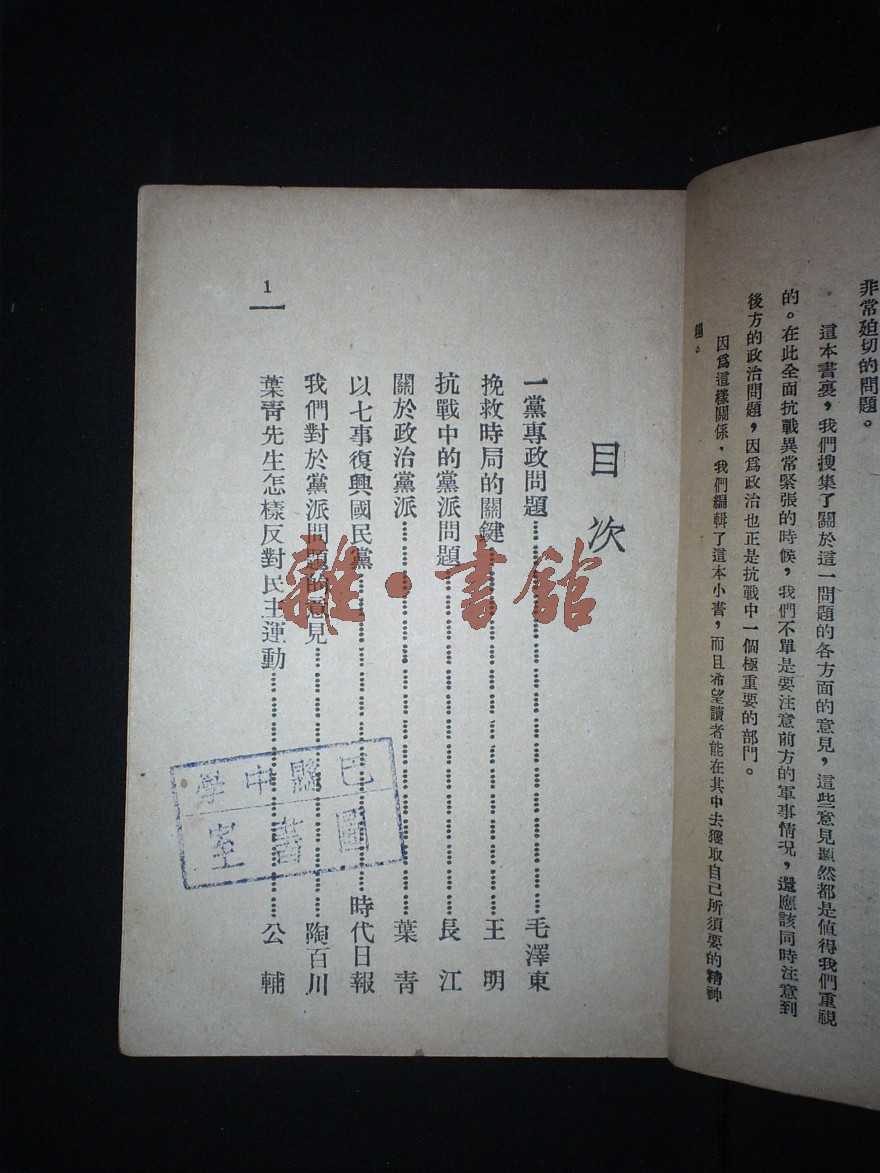 非常廹切的問題。
這本書裏，我們搜集了關於這一問題的各方面的意見，這些意見顯然都是值得我們重視
的。在此全面抗戰異常緊張的時候，我們不單是要注意前方的軍事情况，還應該同時注意到
後方的政治問題，因爲政治也正是抗戰中一個極重要的部門。
因爲這樣關係，我們編輯了這本小書，而且希望讀者能在其中去獲取自己所須要的精神
糧。
目次
一黨專政問題……毛澤東
挽救時局的關鍵……王明
抗戰中的黨派問題……長江
關於政治黨派……葉青
以七事復興國民黨……時代日報
我們對於黨派問題的意見……陶百川
葉青先生怎樣反對民主運動……公輔
1
雜·書館
巴縣中學
圖書室